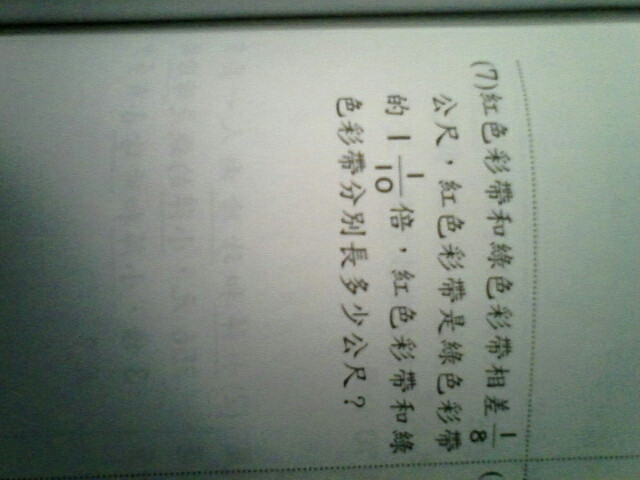 (7)紅色彩帶和綠色彩帶相差1/8
公尺，紅色彩帶是綠色彩帶
的1 1/10倍，紅色彩帶和綠
色彩帶分別長多少公尺？